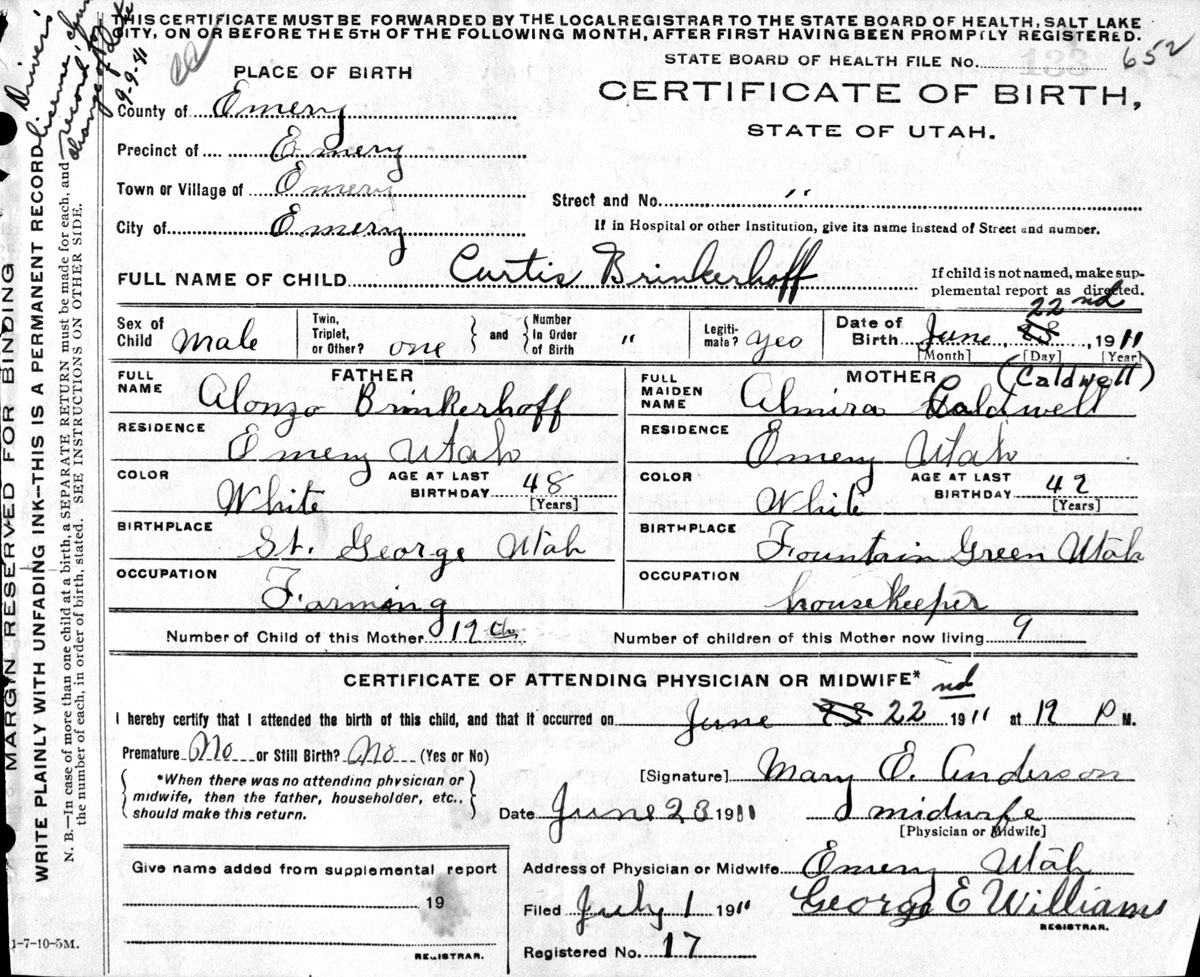 THIS CERTIFICATE MUST BE FORWARDED BY THE LOCAL REGISTRAR TO THE STATE BOARD OF HEALTH, SALT LAKE
CITY, ON OR BEFORE THE 5TH OF THE FOLLOWING MONTH, AFTER FIRST HAVING BEEN PROMPTLY REGISTERED.
STATE BOARD OF HEALTH FILE No. 133 652
CERTIFICATE OF BIRTH,
STATE OF UTAH.
PLACE OF BIRTH
County of Emery
Precinct of Emery
Town or Village of Emery
City of Emery
Street and No. "
If in Hospital or other Institution, give its name instead of Street and number.
FULL NAME OF CHILD Curtis Brinkerhoff
If child is not named, make sup-
plemental report as directed.
Sex of Child male
Twin, Triplet, or Other? one } and { Number In Order of Birth "
Legiti-mate? yes
Date of Birth June 28 22nd, 1911
[Month] [Day] [Year]
FATHER
FULL NAME Alonzo Brinkerhoff
RESIDENCE Emery Utah
COLOR White AGE AT LAST BIRTHDAY 48 [Years]
BIRTHPLACE St. George Utah
OCCUPATION Farming
MOTHER (Caldwell)
FULL MAIDEN NAME Almira Caldwell
RESIDENCE Emery Utah
COLOR White AGE AT LAST BIRTHDAY 42 [Years]
BIRTHPLACE Fountain Green Utah
OCCUPATION housekeeper
Number of Child of this Mother 12th Number of children of this Mother now living 9
CERTIFICATE OF ATTENDING PHYSICIAN OR MIDWIFE*
I hereby certify that I attended the birth of this child, and that it occurred on June 28 22nd 1911 at 12 P M.
Premature No or Still Birth? No (Yes or No)
*When there was no attending physician or
midwife, then the father, householder, etc.,
should make this return.
[Signature] Mary E. Anderson
Date June 23 1911 midwife
[Physician or Midwife]
Give name added from supplemental report
19
REGISTRAR.
Address of Physician or Midwife Emery Utah
Filed July 1 1911 George E Williams
REGISTRAR.
Registered No. 17
1-7-10-5M.
MARGIN RESERVED FOR BINDING
WRITE PLAINLY WITH UNFADING INK--THIS IS A PERMANENT RECORD
N. B.—In case of more than one child at birth, a SEPARATE RETURN must be made for each, and
the number of each, in order of birth, stated. SEE INSTRUCTIONS ON OTHER SIDE.
Driver's
record
change of date
9-9-41